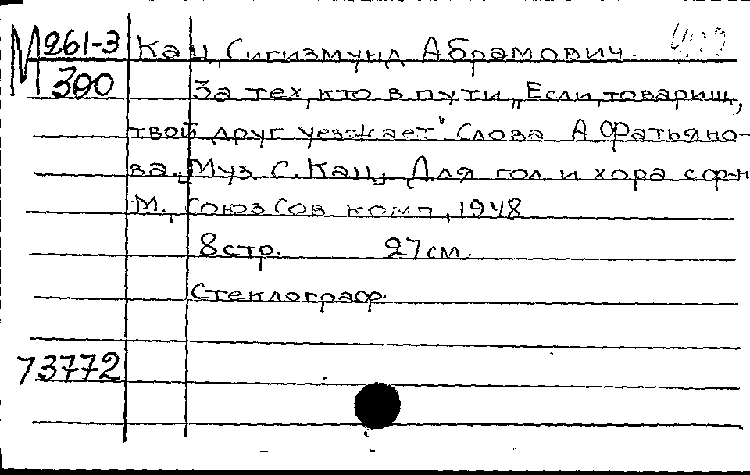 М 261-3 Кац, Сигизмунд Абрамович.
300 За тех, кто в пути „Если, товарищ,
твой друг уезжает" Слова А. Фатьяно-
ва. Муз. С. Кац. Для гол и хора с ф-н
М., Союз Сов комп, 1948
8 стр. 27 см.
Стеклограф.
73772